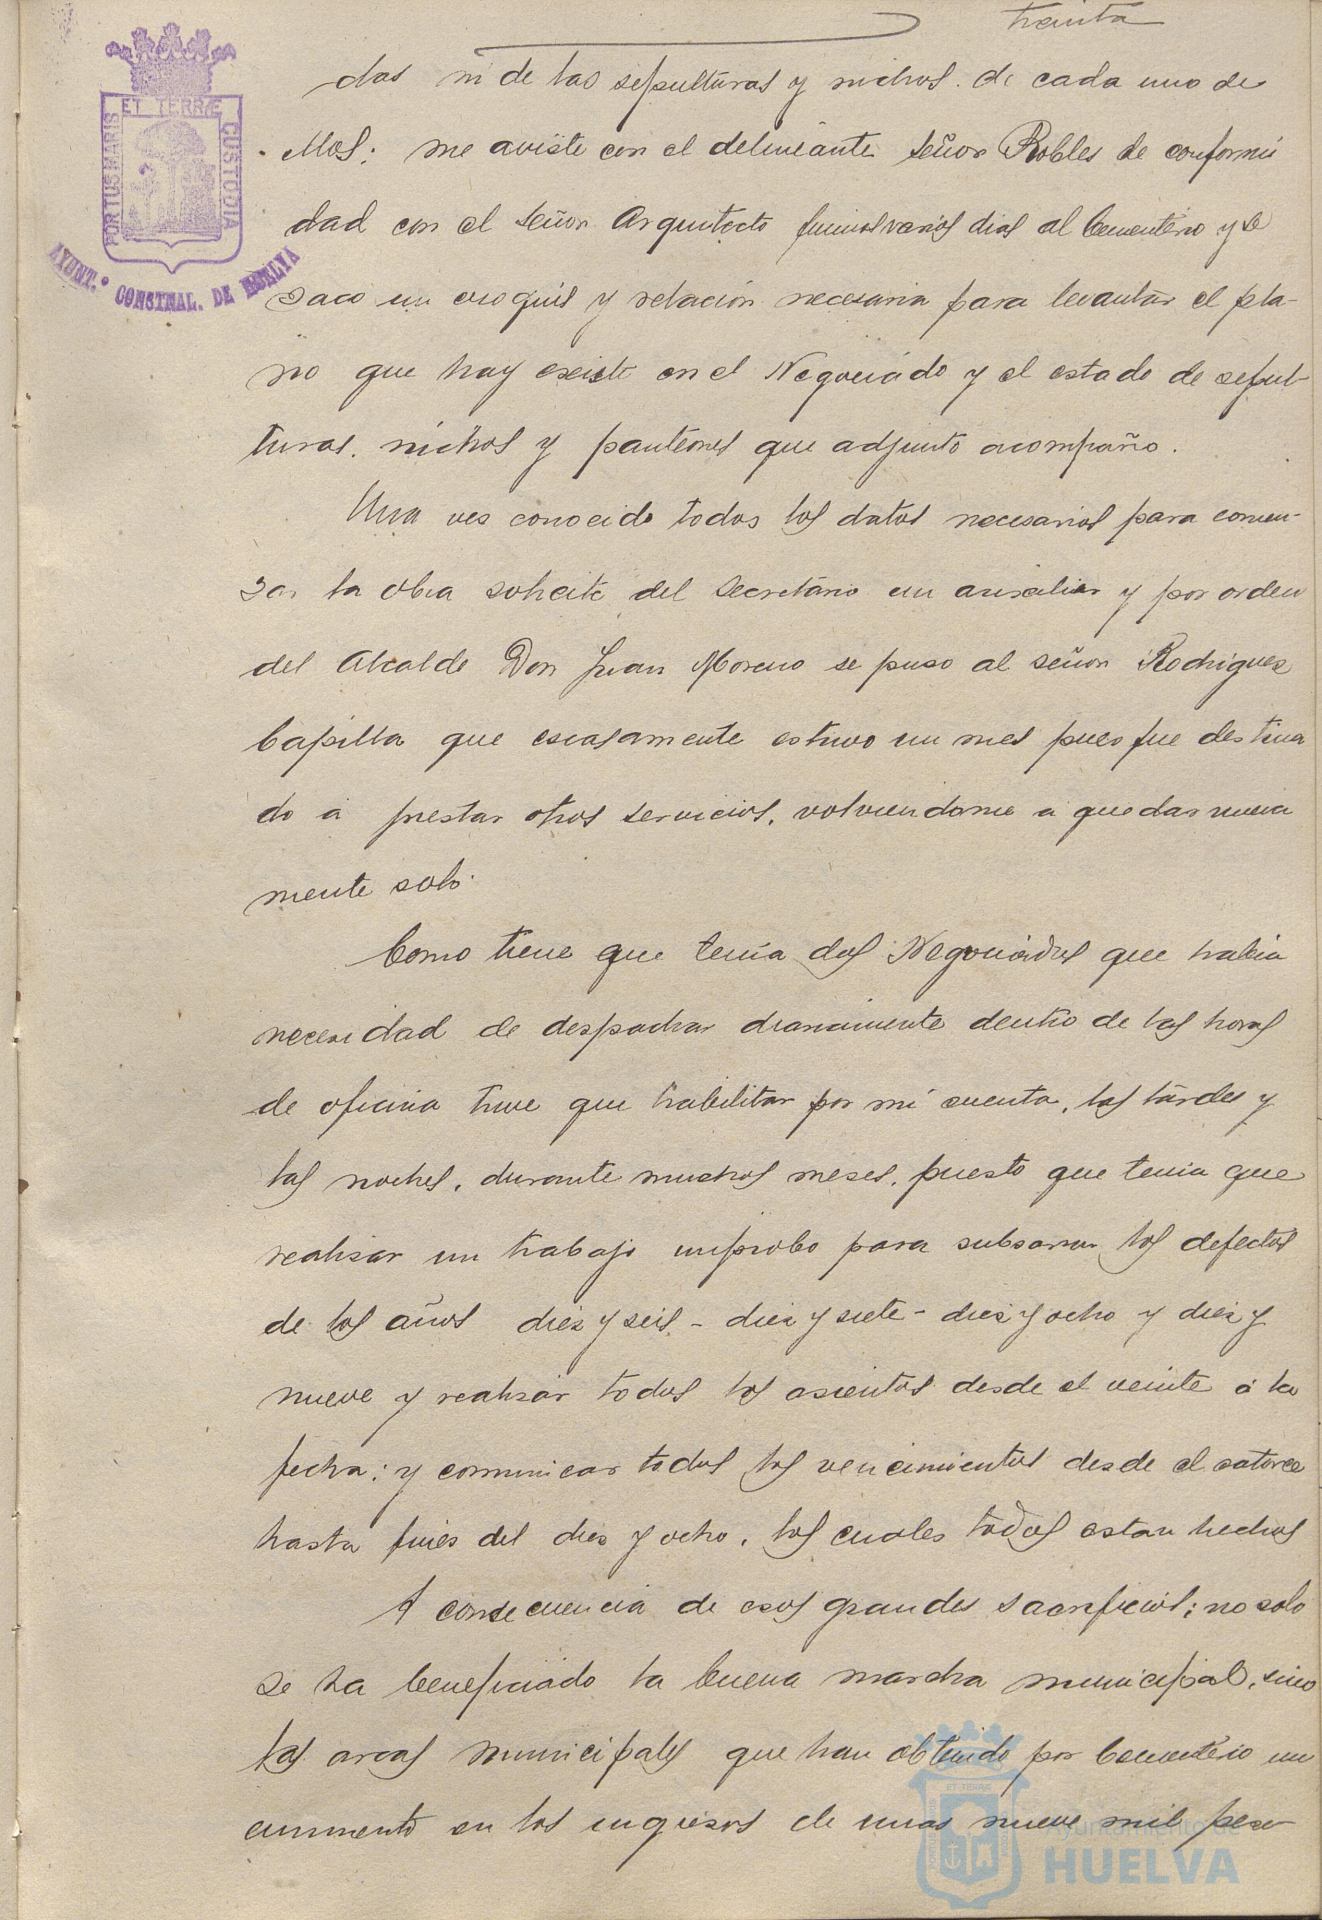 treinta
das ni de las sepulturas y nichos. de cada uno de
ellos; me aviste con el delineante señor Robles de conformi
dad con el señor Arquitecto fuimos varios dias al Cementerio y se
saco un croquis y relación necesaria para levantar el pla-
no que hay existe en el Negociado y el estado de sepul-
turas. nichos y panteones que adjunto acompaño.
Una ves conocido todos los datos necesarios para comen-
zar la obra solicite del secretario un auxiliar y por orden
del Alcalde Don Juan Moreno se puso al señor Rodriguez
Capilla que escasamente estuvo un mes pues fue destina
do a prestar otros servicios, volviendome a quedar nueva
mente solo.
Como tiene que tenia dos Negociados que habia
necesidad de despachar diariamente dentro de las horas
de oficina tuve que habilitar por mi cuenta, las tardes y
las noches, durante muchos meses, puesto que tenia que
realisar un trabajo improbo para subsanar los defectos
de los años diez y seis - diez y siete - diez y ocho y diez y
nueve y realisar todos los asientos desde el veinte a la
fecha; y comunicar todos los vencimientos desde el catorce
hasta fines del dies y ocho, los cuales todos estan hechos
A consecuencia de esos grandes sacrificios; no solo
se ha beneficiado la buena marcha municipal, sino
las arcas municipales que han obtenido por Cementerio un
aumento en los ingresos de unas nueve mil pese
PORTUS MARIS ET TERRÆ CUSTODIA
AYUNT.º CONSTNAL. DE HUELVA
Ayuntamiento de
HUELVA